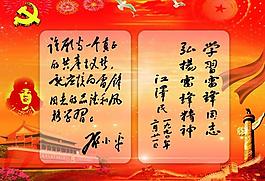 谁愿当一个真正
的共产主义者，
就应该向雷锋
同志的品德和风
格学习。
邓小平
學習雷鋒同志
弘揚雷鋒精神
江澤民
一九九〇年